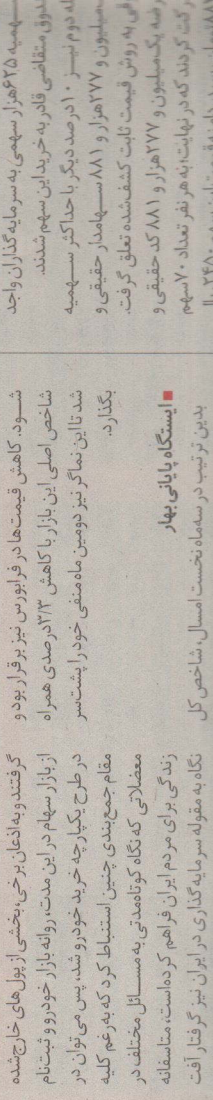 سهمیه ۶۲۵هزار سهمی به سرمایه‌گذاران واجد
متقاضی قادر به خرید این سهم شدند.
دوم نیز ۱۰درصد دیگر با حداکثر سهمیه
میلیون و ۲۷۷هزار و ۸۸۱ سهامدار حقیقی و
به روش قیمت ثابت کشف‌شده تعلق گرفت.
یک‌میلیون و ۲۷۷هزار و ۸۸۱ کد حقیقی و
کردند که در نهایت، به هر نفر تعداد ۷۰سهم
شود. کاهش قیمت‌ها در فرابورس نیز برقرار بود و
شاخص اصلی این بازار با کاهش ۳/۳درصدی همراه
شد تا این نماگر نیز دومین ماه منفی خود را پشت‌سر
بگذارد.
ایستگاه پایانی بهار
بدین ترتیب در سه‌ماه نخست امسال، شاخص کل
گرفتند و به اذعان برخی، بخشی از پول‌های خارج‌شده
از بازار سهام در این مدت، روانه بازار خودرو و ثبت‌نام
در طرح یکپارچه خرید خودرو شد، پس می‌توان در
مقام جمع‌بندی چنین استنباط کرد که به‌رغم کلیه
معضلاتی که نگاه کوتاه‌مدتی به مسائل مختلف در
زندگی برای مردم ایران فراهم کرده‌است، متاسفانه
نگاه به مقوله سرمایه‌گذاری در ایران نیز گرفتار آفت